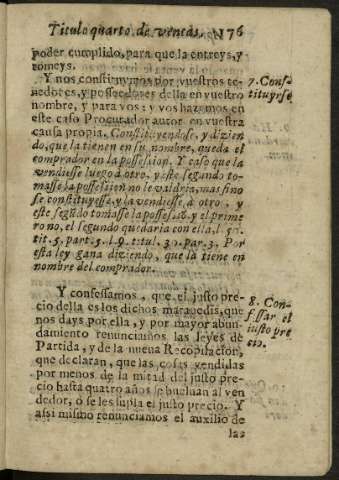 Titulo quarto de ventas. 176
poder cumplido, para que la entreys, y
tomeys.
Y nos constituymos por vuestros te-
nedores, y posseedores della en vuestro
nombre, y para vos: y vos hazemos en
este caso Procurador autor en vuestra
causa propia. Constituyendose, y dizien
do, que la tienen en su nombre, queda el
comprador en la possession. Y caso que la
vendiesse luego à otro, y este segundo to-
masse la possession no le valdria, mas si no
se constituyesse, y la vendiesse à otro, y
este segūdo tomasse la possessiō, y el prime
ro no, el segundo quedaria con ella, l. 50.
tit. 5. part. 5. l. 9. titul. 30. par. 3. Por
esta ley gana diziendo, que la tiene en
nombre del comprador.
7. Cons-
tituyrse
Y confessamos, que el justo pre-
cio della es los dichos marauedis, que
nos days por ella, y por mayor abun-
damiento renunciamos las leyes de
Partida, y de la nueua Recopilacion,
que declaran, que las cosas vendidas
por menos de la mitad del justo pre-
cio hasta quatro años se bueluan al ven
dedor, ò se les supla el justo precio. Y
assi mismo renunciamos el auxilio de
las
8. Con-
fessar el
justo pre
cio.